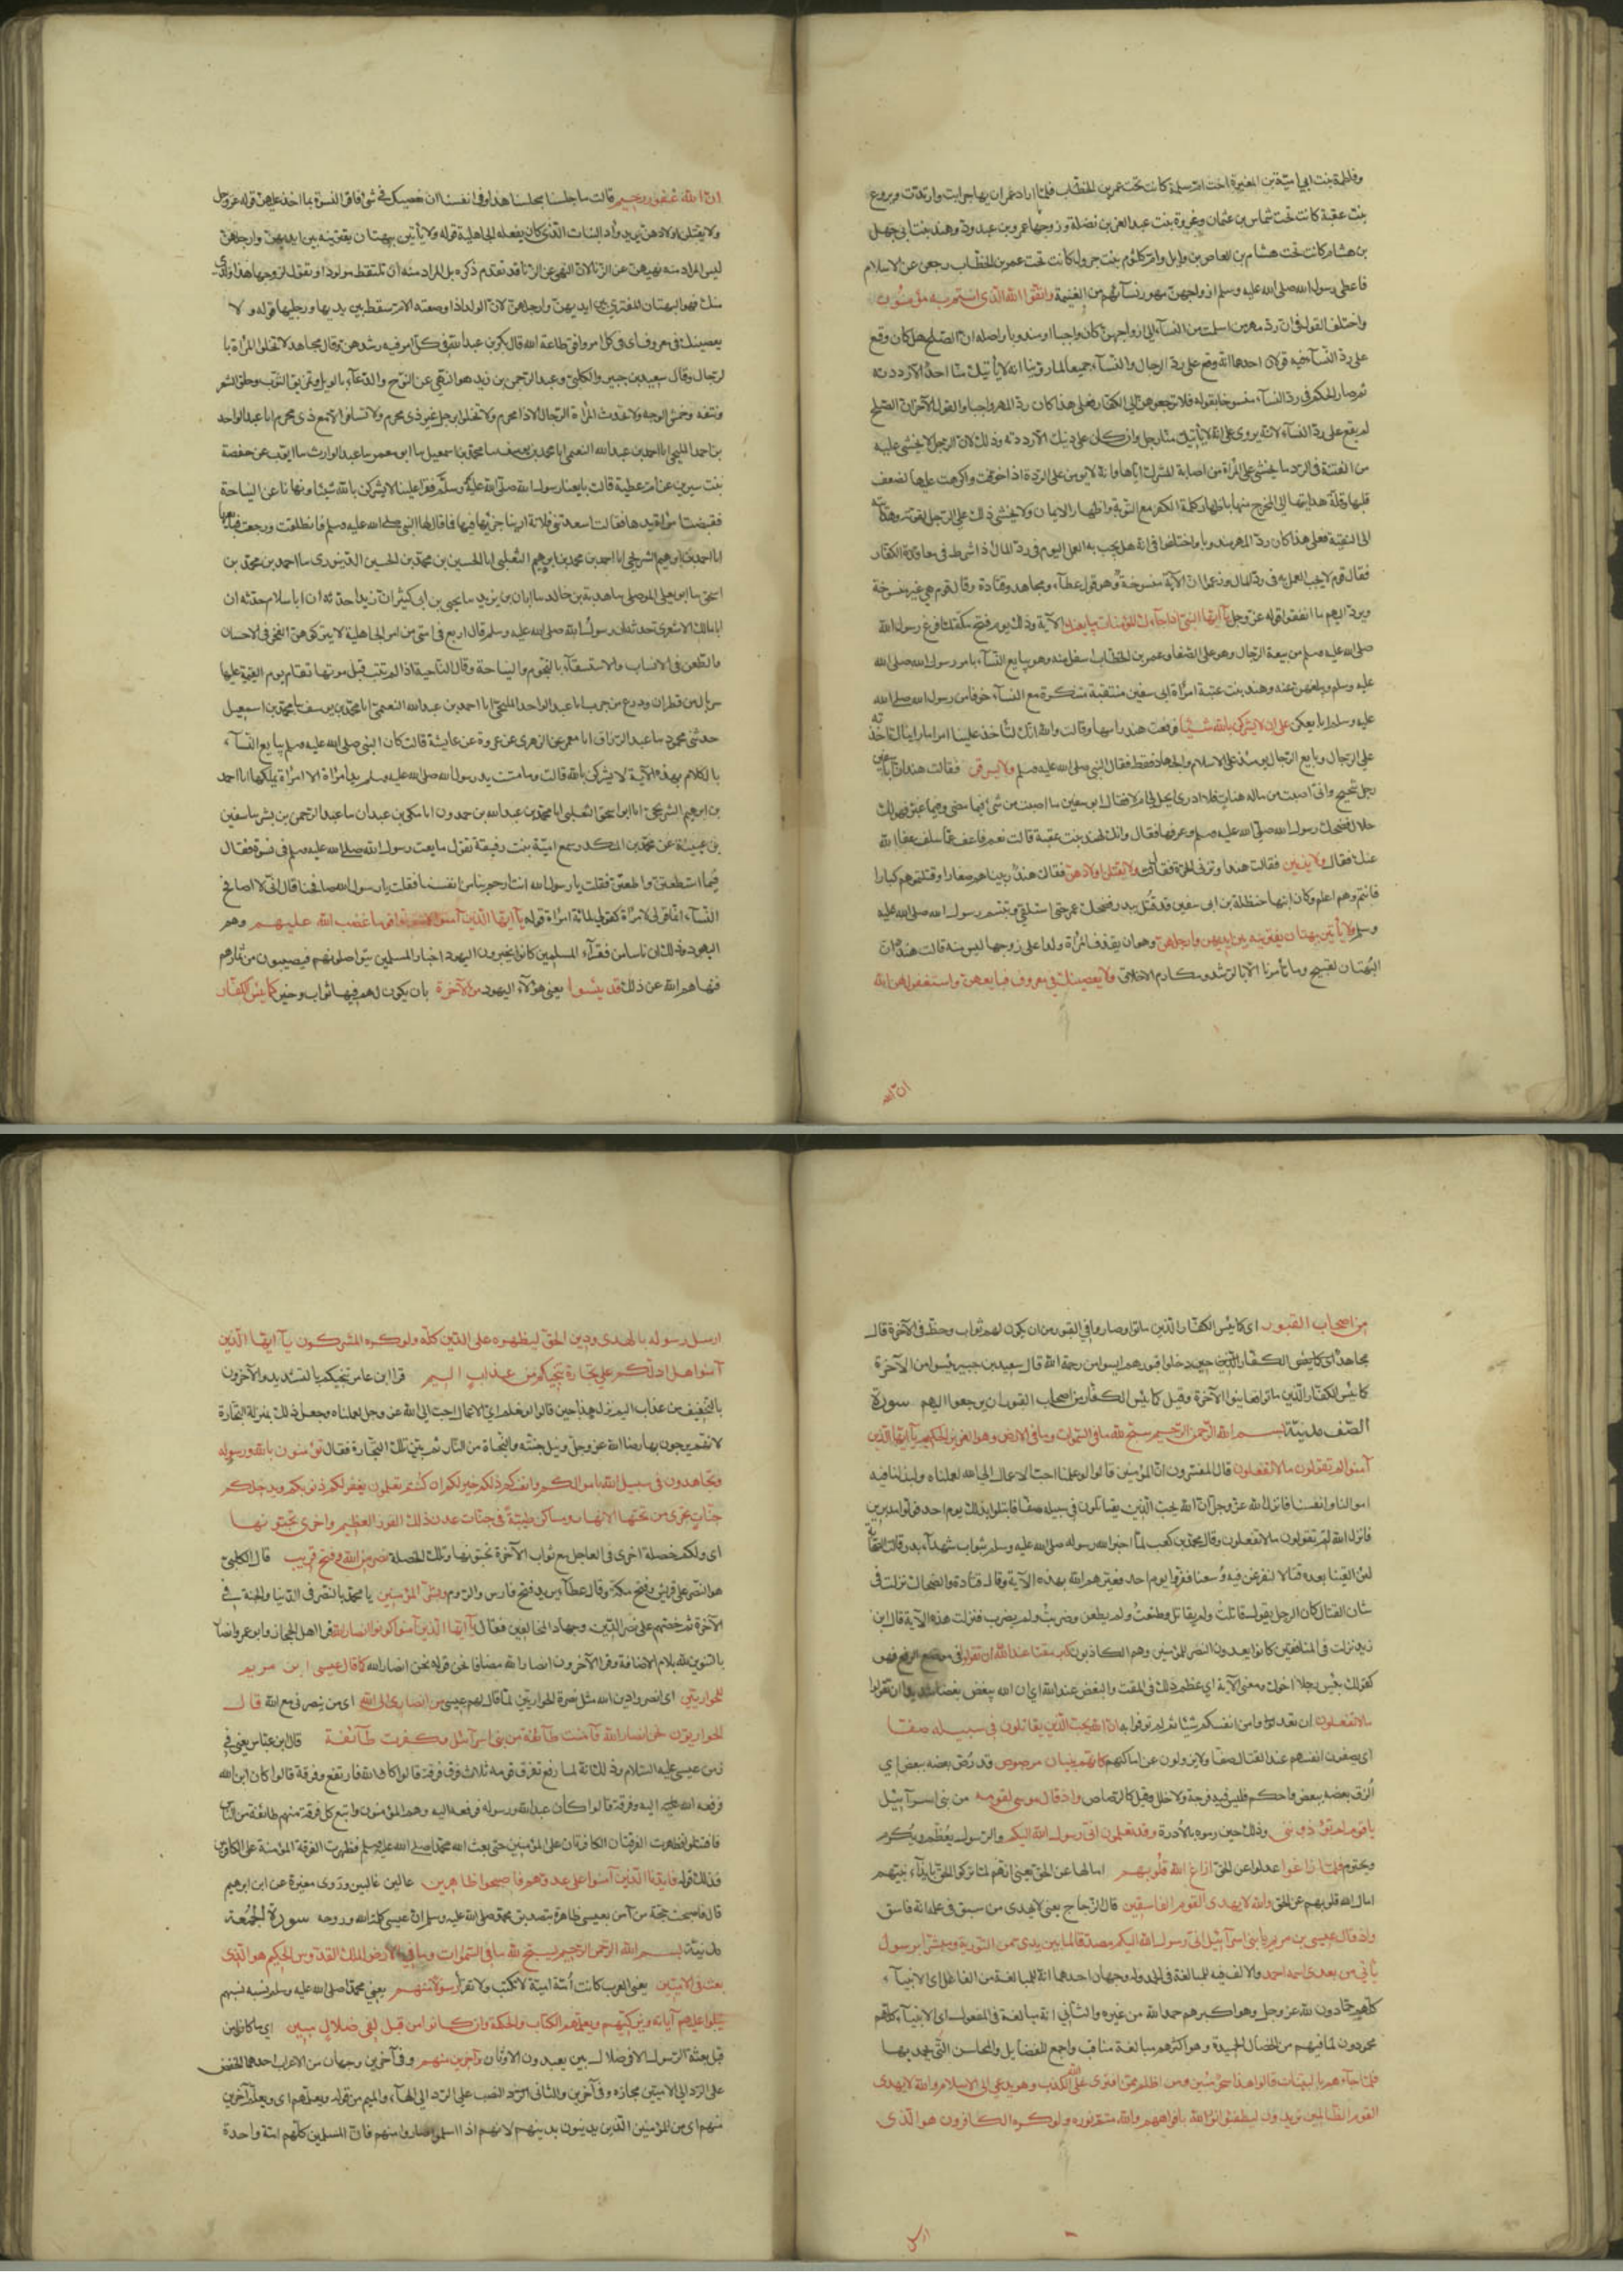 وفاطمة بنت ابي امية بن المغيرة اخت ام سلمة كانت تحت عمر بن الخطاب فلما اراد عمر ان يهاجر ابت وارتدت وبروع
بنت عقبة كانت تحت شماس بن عثمان وغروة بنت عبد العزى بن نضلة وزوجها عمرو بن عبدود وهند بنت ابي جهل
بن هشام كانت تحت هشام بن العاص بن وايل وام كلثوم بنت جرول كانت تحت عمر بن الخطاب رجعن عن الاسلام
فاعطى رسول الله صلى الله عليه وسلم ازواجهن مهور نسآئهم من الغنيمة واتقوا الله الذي انتم به مؤمنون
واختلف القول في ان رد مهر من اسلمت من النسآء الى ازواجهن كان واجبا او مندوبا واصله ان الصلح هل كان وقع
على رد النسآء فيه قولان احدهما انه وقع على رد الرجال والنسآء جميعا لما روينا انه لا يأتيك منا احد الا رددته
ثم صار الحكم في رد النسآء منسوخا بقوله فلا ترجعوهن الى الكفار فعلى هذا كان رد المهر واجبا والقول الآخر ان الصلح
لم يقع على رد النسآء لانه يروى على انه لا يأتيك منا رجل وان كان على دينك الا رددته وذلك لان الرجل لا يخشى عليه
من الفتنة في الرد ما يخشى على المرأة من اصابة المشرك اياها وانه لا يؤمن على الردة اذا خوفت واكرهت عليها لضعف
قلبها وقلة هدايتها الى المخرج منها باظهار كلمة الكفر مع التورية واظهار الايمان ولا يخشى ذلك على الرجل لقوته وهدايته
الى التقية فعلى هذا كان رد المهر مندوبا واختلفوا في انه هل يجب به العمل اليوم في رد المال اذا شرط في معاقدة الكفار
فقال قوم لا يجب العمل به في رد المال وزعموا ان الآية منسوخة وهو قول عطآء ومجاهد وقتادة وقال قوم هي غير منسوخة
ويرد اليهم ما انفقوا قوله عز وجل يآ ايها النبي اذا جآءك المؤمنات يبايعنك الآية وذلك يوم فتح مكة لما فرغ رسول الله
صلى الله عليه وسلم من بيعة الرجال وهو على الصفا وعمر بن الخطاب اسفل منه وهو يبايع النسآء بامر رسول الله صلى الله
عليه وسلم ويبلغهن عنه وهند بنت عتبة امرأة ابي سفين منتقبة متنكرة مع النسآء خوفا من رسول الله صلى الله
عليه وسلم ابايعكن على ان لا يشركن بالله شيئا فرفعت هند رأسها وقالت والله انك لتأخذ علينا امرا ما رأيناك اخذته
على الرجال وبايع الرجال يومئذ على الاسلام والجهاد فقط فقال النبي صلى الله عليه وسلم ولا يسرقن فقالت هند ان ابا سفين
رجل شحيح واني اصبت من ماله هنات فلا ادري ايحل لي ام لا فقال ابو سفين ما اصبت من شئ فيما مضى وفيما غبر فهو لك
حلال فضحك رسول الله صلى الله عليه وسلم وعرفها فقال وانك لهند بنت عقبة قالت نعم فاعف عما سلف عفا الله
عنك فقال ولا يزنين فقالت هند او تزني الحرة فقال ولا يقتلن اولادهن فقالت هند ربيناهم صغارا وقتلتموهم كبارا
فانتم وهم اعلم وكان ابنها حنظلة بن ابي سفين قد قتل يوم بدر فضحك عمر حتى استلقى وتبسم رسول الله صلى الله عليه
وسلم ولا يأتين ببهتان يفترينه بين ايديهن وارجلهن وهو ان يقذف المرأة ولدا على زوجها ليس منه قالت هند ان
البهتان لقبيح وما تأمرنا الا بالرشد ومكارم الاخلاق ولا يعصينك في معروف فبايعهن واستغفر لهن الله
ان الله
ان الله غفور رحيم قالت ما جلسنا مجلسنا هذا وفي انفسنا ان نعصيك في شئ فاقر النسوة بما اخذ عليهن قوله عز وجل
ولا يقتلن اولادهن يريد وأد البنات الذي كان يفعله اهل الجاهلية قوله ولا يأتين ببهتان يفترينه بين ايديهن وارجلهن
ليس المراد منه نهيهن عن الزنا لان النهي عن الزنا قد تقدم ذكره بل المراد منه ان تلتقط مولودا وتقول لزوجها هذا ولدي
منك فهو البهتان المفترى بين ايديهن وارجلهن لان الولد اذا وضعته الام سقط بين يديها ورجليها قوله ولا
يعصينك في معروف اي في كل امر وافق طاعة الله قال بكر بن عبد الله في كل امر فيه رشدهن وقال مجاهد لا تخلوا المرأة با
لرجال وقال سعيد بن جبير والكلبي وعبد الرحمن بن زيد هو النهي عن النوح والدعآء بالويل وتمزيق الثوب وحلق الشعر
ونتفه وخمش الوجه ولا تحدث المرأة الرجال الا ذا محرم ولا تخلوا برجل غير ذي محرم ولا تسافر الا مع ذي محرم انا عبد الواحد
بن احمد المليحي انا احمد بن عبد الله النعيمي انا محمد بن يوسف نا محمد بن اسمعيل نا ابو معمر نا عبد الوارث نا ايوب عن حفصة
بنت سيرين عن ام عطية قالت بايعنا رسول الله صلى الله عليه وسلم فقرأ علينا لا يشركن بالله شيئا ونهانا عن النياحة
فقبضت امرأة يدها فقالت اسعدتني فلانة اريد ان اجزيها فما قال لها النبي صلى الله عليه وسلم فانطلقت ورجعت فبايعها
انا احمد بن ابرهيم الشريحي انا احمد بن محمد بن ابرهيم الثعلبي انا الحسين بن محمد بن الحسين الدينوري نا احمد بن محمد بن
اسحق نا ابو يعلى الموصلي نا هدبة بن خالد نا ابان بن يزيد نا يحيى بن ابي كثير ان زيدا حدثه ان ابا سلام حدثه ان
ابا مالك الاشعري حدثه ان رسول الله صلى الله عليه وسلم قال اربع في امتي من امر الجاهلية لا يتركوهن الفخر في الاحسان
والطعن في الانساب والاستسقآء بالنجوم والنياحة وقال النآئحة اذا لم تتب قبل موتها تقام يوم القيمة عليها
سربال من قطران ودرع من جرب انا عبد الواحد المليحي انا احمد بن عبد الله النعيمي انا محمد بن يوسف نا محمد بن اسمعيل
حدثني محمود نا عبد الرزاق انا معمر عن الزهري عن عروة عن عايشة قالت كان النبي صلى الله عليه وسلم يبايع النسآء
بالكلام بهذه الآية لا يشركن بالله قالت وما مست يد رسول الله صلى الله عليه وسلم يد امرأة الا امرأة يملكها انا احمد
بن ابرهيم الشريحي انا ابو اسحق الثعلبي انا محمد بن عبد الله بن حمدون انا مكي بن عبدان نا عبد الرحمن بن بشر نا سفين
بن عيينة عن محمد بن المنكدر سمع اميمة بنت رقيقة تقول بايعت رسول الله صلى الله عليه وسلم في نسوة فقال
فيما استطعتن واطقتن فقلت يا رسول الله انت ارحم بنا من انفسنا فقلت يا رسول الله صافحنا قال اني لا اصافح
النسآء انما قولي لامرأة كقولي لمائة امرأة قوله يآ ايها الذين آمنوا لا تتولوا قوما غضب الله عليهم وهم
اليهود وذلك ان ناسا من فقرآء المسلمين كانوا يخبرون اليهود اخبار المسلمين يتواصلونهم فيصيبون من ثمارهم
فنهاهم الله عن ذلك قد يئسوا يعني هؤلآء اليهود من الآخرة بان يكون لهم فيها ثواب وخير كما يئس الكفار
من اصحاب القبور اي كما يئس الكفار الذين ماتوا وصاروا في القبور من ان يكون لهم ثواب وحظ في الآخرة قال
مجاهد اي كما يئس الكفار الذين حين دخلوا قبورهم ايسوا من رحمة الله قال سعيد بن جبير يئسوا من الآخرة
كما يئس الكفار الذين ماتوا فعاينوا الآخرة وقيل كما يئس الكفار من اصحاب القبور ان يرجعوا اليهم سورة
الصف مدينة بسم الله الرحمن الرحيم سبح لله ما في السموات وما في الارض وهو العزيز الحكيم يآ ايها الذين
آمنوا لم تقولون ما لا تفعلون قال المفسرون ان المؤمنين قالوا لو علمنا احب الاعمال الى الله لعملناه ولبذلنا فيه
اموالنا وانفسنا فانزل الله عز وجل ان الله يحب الذين يقاتلون في سبيله صفا فابتلوا بذلك يوم احد فولوا مدبرين
فانزل الله لم تقولون ما لا تفعلون وقال محمد بن كعب لما اخبر الله رسوله صلى الله عليه وسلم بثواب شهدآء بدر قالت الصحابة
لئن لقينا بعده قتالا لنفرغن فيه وسعنا ففروا يوم احد فعيرهم الله بهذه الآية وقال قتادة والضحاك نزلت في
شان القتال كان الرجل يقول قاتلت ولم يقاتل وطعنت ولم يطعن وضربت ولم يضرب فنزلت هذه الآية قال ابن
زيد نزلت في المنافقين كانوا يعدون النصر للمؤمنين وهم الكاذبون كبر مقتا عند الله ان تقولوا في موضع الرفع فهو
كقولك بئس رجلا اخوك ومعنى الآية اي عظم ذلك في المقت والبغض عند الله اي ان الله يبغض بغضا شديدا ان تقولوا
ما لا تفعلون ان تعدوا وامن انفسكم شيئا ثم لم توفوا به ان الله يحب الذين يقاتلون في سبيله صفا
اي يصفون انفسهم عند القتال صفا ولا يزولون عن اماكنهم كانهم بنيان مرصوص قد رص بعضه ببعض اي
الزق بعضه ببعض واحكم فليس فيه فرجة ولا خلل وقيل كالرصاص واذ قال موسى لقومه من بني اسرآئيل
يا قوم لم تؤذونني وذلك حين رموه بالأدرة وقد تعلمون اني رسول الله اليكم والرسول يعظم ويكرم
ويحترم فلما زاغوا عدلوا عن الحق ازاغ الله قلوبهم امالها عن الحق يعني انهم لما تركوا الحق بايذآء نبيهم
امال الله قلوبهم عن الحق والله لا يهدي القوم الفاسقين قال الزجاج يعني لا يهدي من سبق في علمه انه فاسق
واذ قال عيسى بن مريم يا بني اسرآئيل اني رسول الله اليكم مصدقا لما بين يدي من التورية ومبشرا برسول
يأتي من بعدي اسمه احمد والالف فيه للمبالغة في الحمد وله وجهان احدهما انه للمبالغة من الفاعل اي الانبيآء
كلهم حمادون لله عز وجل وهو اكبرهم حمدا لله من غيره والثاني انه مبالغة في المفعول اي الانبيآء كلهم
محمودون لما فيهم من الخصال الحميدة وهو اكثرهم مبالغة مناقب واجمع للفضايل والمحاسن التي يحمد بها
فلما جآءهم بالبينات قالوا هذا سحر مبين ومن اظلم ممن افترى على الله الكذب وهو يدعى الى الاسلام والله لا يهدي
القوم الظالمين يريدون ليطفئوا نور الله بافواههم والله متم نوره ولو كره الكافرون هو الذي
ارسل
ارسل رسوله بالهدى ودين الحق ليظهره على الدين كله ولو كره المشركون يآ ايها الذين
آمنوا هل ادلكم على تجارة تنجيكم من عذاب اليم قرأ ابن عامر تنجيكم بالتشديد والآخرون
بالتخفيف من عذاب اليم نزل هذا حين قالوا لو نعلم اي الاعمال احب الى الله عز وجل لعملناه وجعل ذلك بمنزلة التجارة
لانهم يربحون بها رضا الله عز وجل ونيل جنته والنجاة من النار ثم بين تلك التجارة فقال تؤمنون بالله ورسوله
وتجاهدون في سبيل الله باموالكم وانفسكم ذلكم خير لكم ان كنتم تعلمون يغفر لكم ذنوبكم ويدخلكم
جنات تجري من تحتها الانهار ومساكن طيبة في جنات عدن ذلك الفوز العظيم واخرى تحبونها
اي ولكم خصلة اخرى في العاجل مع ثواب الآخرة تحبونها وتلك الخصلة نصر من الله وفتح قريب قال الكلبي
هو النصر على قريش وفتح مكة وقال عطآء يريد فتح فارس والروم وبشر المؤمنين يا محمد بالنصر في الدنيا والجنة في
الآخرة ثم حضهم على نصر الدين وجهاد المخالفين فقال يآ ايها الذين آمنوا كونوا انصار الله قرأ اهل الحجاز وابو عمرو انصارا
بالتنوين لله بلام الاضافة وقرأ الآخرون انصار الله مضافا نحو قوله نحن انصار الله كما قال عيسى ابن مريم
للحواريين اي انصروا دين الله مثل نصرة الحواريين لما قال لهم عيسى من انصاري الى الله اي من ينصرني مع الله قال
الحواريون نحن انصار الله فآمنت طآئفة من بني اسرآئيل وكفرت طآئفة قال ابن عباس يعني في
زمن عيسى عليه السلام وذلك انه لما رفع تفرق قومه ثلاث فرق فرقة قالوا كان الله فارتفع وفرقة قالوا كان ابن الله
فرفعه الله اليه وفرقة قالوا كان عبد الله ورسوله فرفعه اليه وهم المؤمنون واتبع كل فرقة منهم طائفة من الناس
فاقتتلوا فظهرت الفرقتان الكافرتان على المؤمنين حتى بعث الله محمدا صلى الله عليه وسلم فظهرت الفرقة المؤمنة على الكافرين
فذلك قوله فايدنا الذين آمنوا على عدوهم فاصبحوا ظاهرين عالين غالبين وروى مغيرة عن ابرهيم
قال فاصبحت حجة من آمن بعيسى ظاهرة بتصديق محمد صلى الله عليه وسلم ان عيسى كلمة الله وروحه سورة الجمعة
مدينة بسم الله الرحمن الرحيم يسبح لله ما في السموات وما في الارض الملك القدوس الحكيم هو الذي
بعث في الاميين يعني العرب كانت امة امية لا تكتب ولا تقرأ رسولا منهم يعني محمدا صلى الله عليه وسلم نسبه نسبهم
يتلوا عليهم آياته ويزكيهم ويعلمهم الكتاب والحكمة وان كانوا من قبل لفي ضلال مبين اي ما كانوا من
قبل بعثة الرسول الا في ضلال مبين يعبدون الاوثان وآخرين منهم وفي آخرين وجهان من الاعراب احدهما الخفض
على الرد الى الاميين مجازه وفي آخرين والثاني النصب على الرد الى الهآء والميم من قوله ويعلمهم اي ويعلم آخرين
منهم اي من المؤمنين الذين يدينون بدينهم لانهم اذا اسلموا صاروا منهم فان المسلمين كلهم امة واحدة